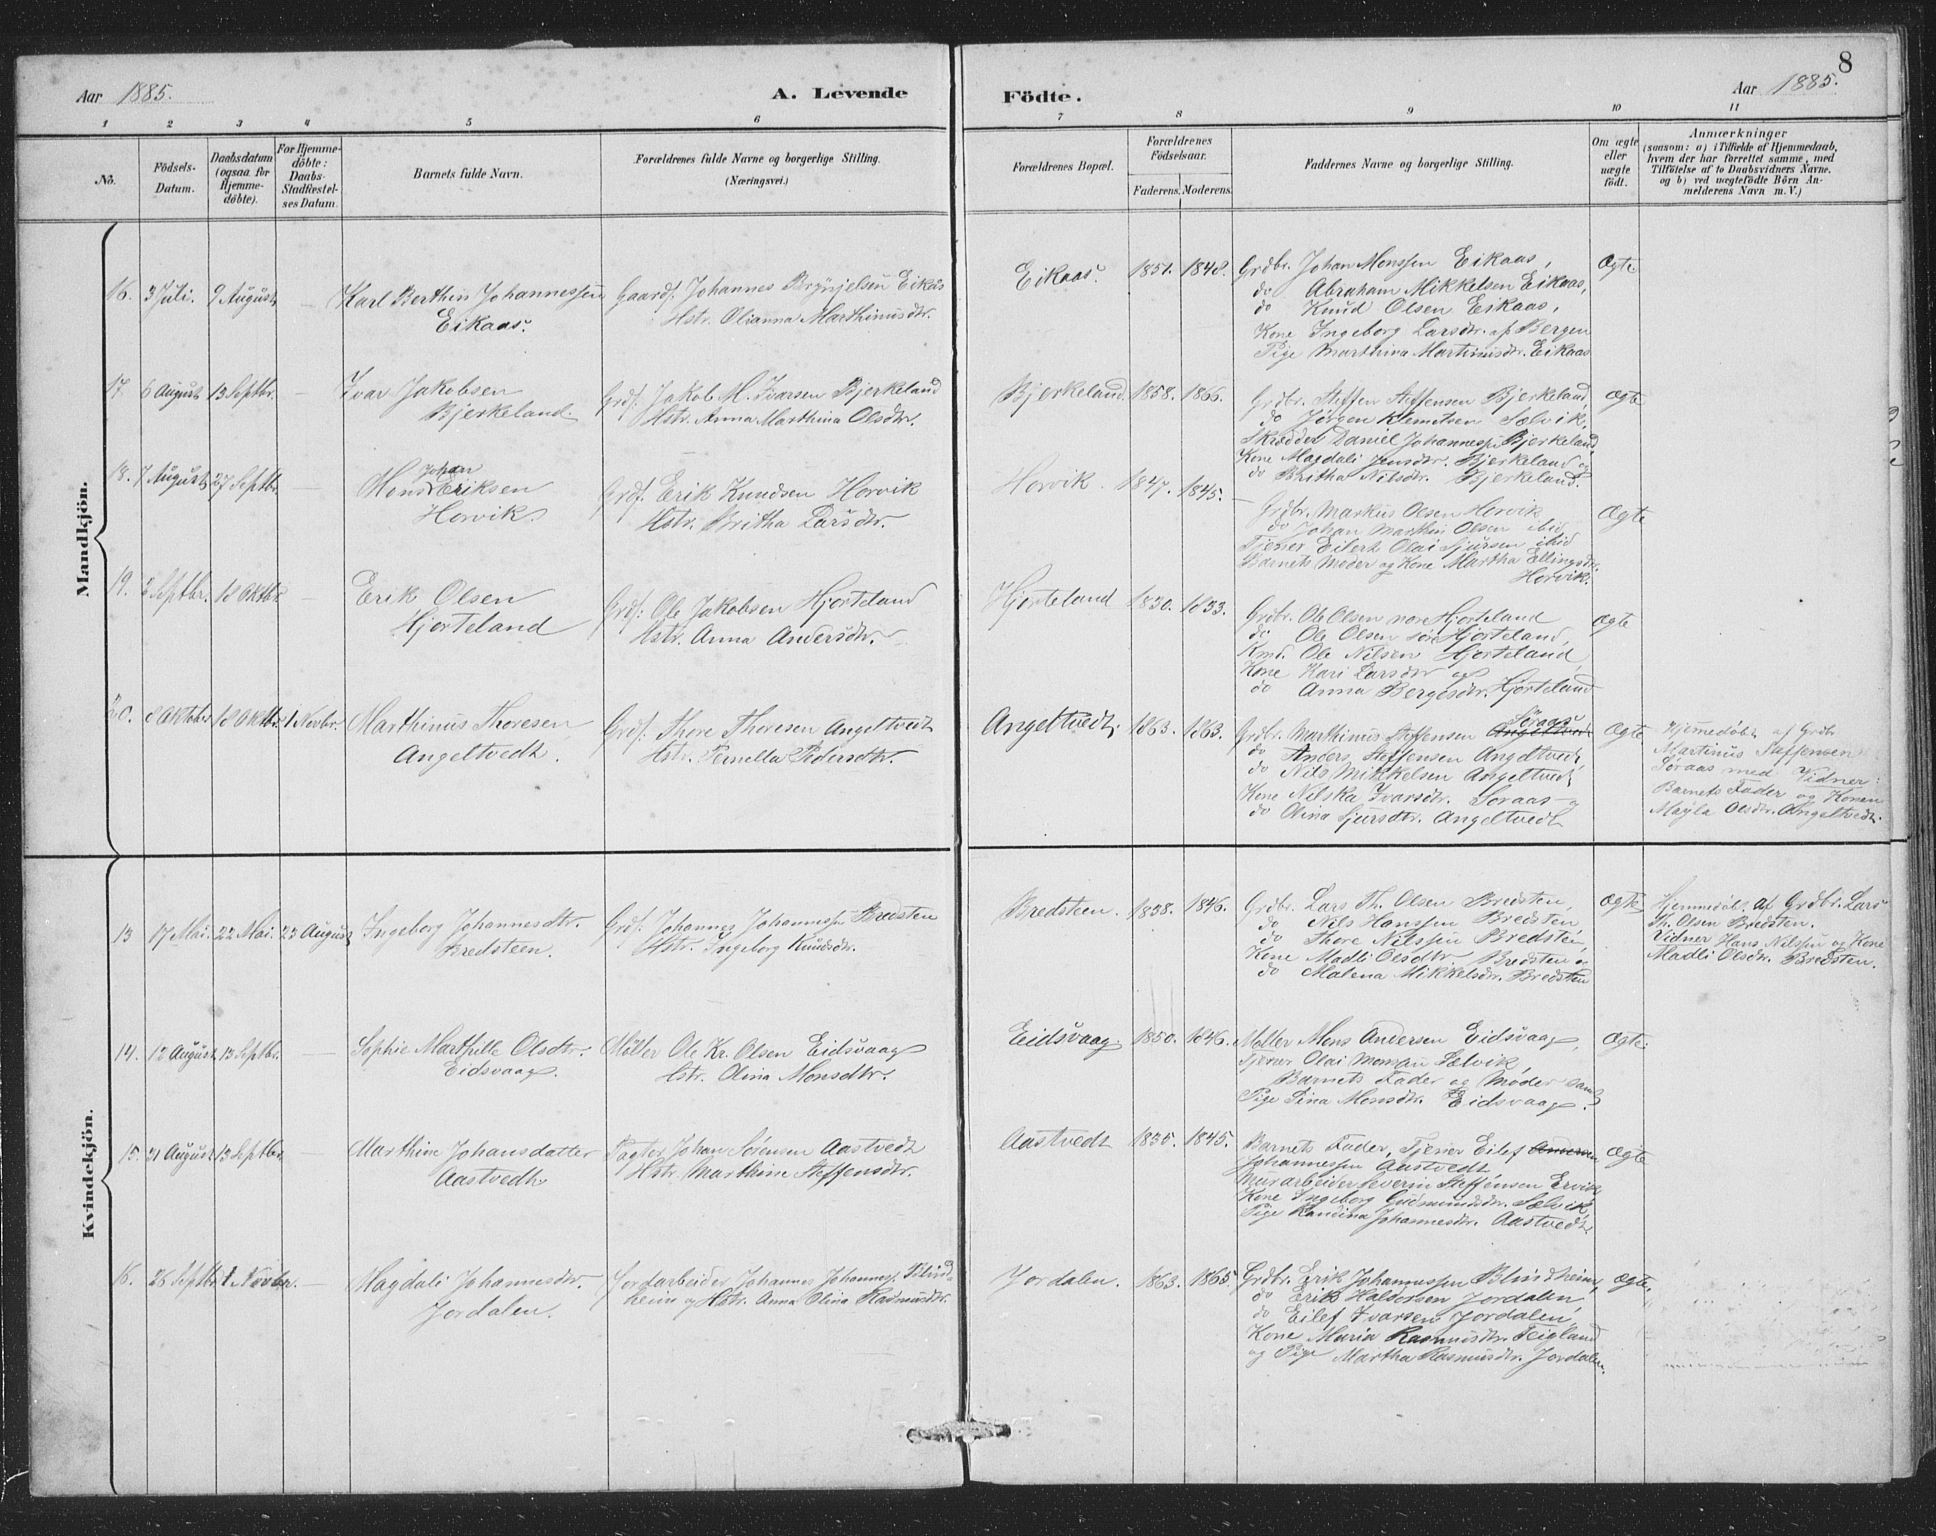 8
Aar 1885.
A. Levende
Födte.
Aar 1885.
1 2 3 4 5 6 7 8 9 10 11
No.
Födsels-
Datum.
Daabsdatum
(ogsaa for
Hjemme-
döbte).
For Hjemme-
döbte:
Daabs-
Stadfæstel-
ses Datum.
Barnets fulde Navn.
Forældrenes fulde Navne og borgerlige Stilling.
(Næringsvei.)
Forældrenes Bopæl.
Forældrenes
Födselsaar.
Faderens. Moderens.
Faddernes Navne og borgerlige Stilling.
Om ægte
eller
uægte
födt.
Anmærkninger
(saasom: a) i Tilfælde af Hjemmedaab,
hvem der har forrettet samme, med
Tilföielse af to Daabsvidners Navne.
og b) ved uægtefödte Börn An-
melderens Navn m. V.)
Mandkjön.
16. 3 Juli. 9 August —
Karl Berthin Johannessen
Eikaas.
Gaardf. Johannes Brynjelsen Eikaas
Hstr. Olianna Marthinusdtr.
Eikaas. 1851. 1848.
Grdbr. Johan Monssen Eikaas,
do Abraham Mikkelsen Eikaas,
do Knud Olsen Eikaas,
Kone Ingeborg Larsdtr. af Bergen
Pige Marthina Martinusdtr. Eikaas
Ægte
17. 6 August 13 Septbr. —
Ivar Jakobsen
Bjerkeland.
Grdf. Jakob M. Ivarsen Bjerkeland
Hstr. Anna Marthina Olsdtr.
Bjerkeland. 1858. 1866.
Grdbr. Steffen Steffensen Bjerkeland,
do Jørgen Klemetsen Sælvik,
Skrædder Daniel Johannessen Bjerkeland,
Kone Magdali Jensdtr. Bjerkeland og
do Britha Nilsdtr. Bjerkeland.
Ægte
18. 7 August 27 Septbr. —
Johan
Mons Eriksen
Horvik.
Grdf. Erik Knudsen Horvik
Hstr. Britha Larsdtr.
Horvik. 1847. 1845.
Grdbr. Markus Olsen Horvik
do Johan Marthin Olsen ibid
Tjener Eilert Olai Sjursen ibid
Barnets Moder og Kone Martha Ellingsdtr.
Horvik.
Ægte
19. 2 Septbr. 18 Oktbr. —
Erik Olsen
Hjorteland
Grdf. Ole Jakobsen Hjorteland
Hstr. Anna Andersdtr.
Hjorteland 1830. 1833.
Grdbr. Ole Olsen nore Hjorteland
do Ole Olsen søre Hjorteland,
Kmd. Ole Nilsen Hjorteland,
Kone Kari Larsdtr og
do Anna Bergesdtr. Hjorteland
Ægte
20. 8 Oktober 18 Oktbr. 1 Novbr.
Marthinus Thoresen
Angeltvedt.
Grdf. Thore Thoresen Angeltvedt
Hstr. Pernella Pedersdtr.
Angeltvedt. 1863. 1863.
Søraas
Grdbr. Marthinus Steffensen Angeltvedt
do Anders Steffensen Angeltvedt,
do Nils Mikkelsen Angeltvedt
Kone Nilska Ivarsdtr. Søraas og
do Olina Sjursdtr. Angeltvedt
Ægte
Hjemmedøbt af Grdbr.
Martinus Steffensen
Søraas med Vidner:
Barnets Fader og Konen
Magla Olsdtr. Angeltvedt.
Kvindekjön.
13 17 Mai. 22 Mai. 23 August
Ingeborg Johannesdtr.
Bredsteen.
Grdf. Johannes Johannessen Bredsten
Hstr. Ingeborg Knudsdtr.
Bredsteen. 1838. 1846.
Grdbr. Lars Th. Olsen Bredsten,
do Nils Hanssen Bredsten,
do Thore Nilssen Bredsten,
Kone Madli Olsdtr. Bredsten og
do Malena Mikkelsdtr. Bredsten
Ægte
Hjemmedøbt af Grdbr. Lars
Th. Olsen Bredsten.
Vidner Hans Nilssen og Kone
Madli Olsdtr. Bredsten.
14. 12 August 13 Septbr. —
Sophie Marthille Olsdtr.
Eidsvaag.
Møller Ole Kr. Olsen Eidsvaag
Hstr. Olina Monsdtr.
Eidsvaag. 1850. 1846.
Møller Mons Andersen Eidsvaag,
Tjener Olai Monssen Sælvik,
Barnets Fader og Moder samt
Pige Sina Monsdtr. Eidsvaag.
Ægte.
15. 21 August 13 Septbr. —
Marthine Johansdatter
Aastvedt.
Pagter Johan Sørensen Aastvedt
Hstr. Marthine Steffensdtr.
Aastvedt 1835. 1845.
Barnets Fader, Tjener Eilef Andersen
Johannessen Aastvedt,
Murarbeider Severin Steffensen Ervik
Kone Ingeborg Gudmundsdtr. Sælvik,
Pige Randina Johannesdtr. Aastvedt.
Ægte
16. 26 Septbr. 1 Novbr. —
Magdali Johannesdtr.
Jordalen.
Jordarbeider Johannes Johanness. Blind-
heim og Hstr. Anna Olina Rasmusdtr.
Jordalen. 1863. 1865.
Grdbr. Erik Johannessen Blindheim,
do Erik Halvorsen Jordalen,
do Eilef Ivarsen Jordalen,
Kone Maria Rasmusdtr. Teigland
og Pige Martha Rasmusdtr. Jordalen.
Ægte.